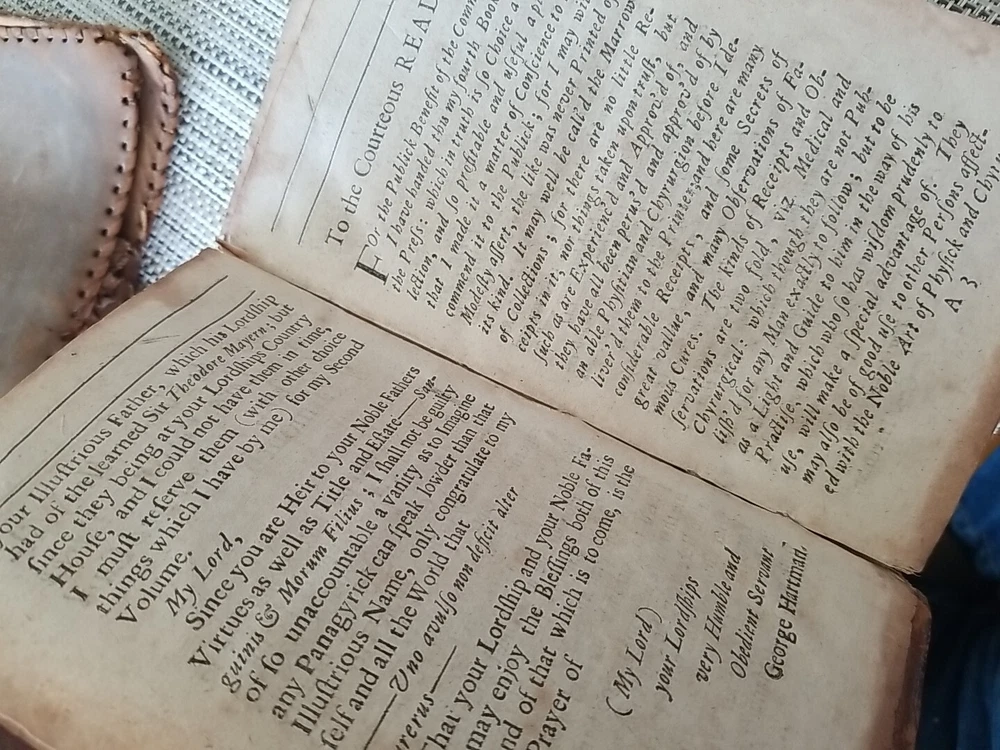 your Illuſtrious Father, which his Lordſhip
had of the learned Sir Theodore Mayern; but
ſince they being at your Lordſhips Country
Houſe, and I could not have them in time,
I muſt reſerve them (with other choice
things which I have by me) for my Second
Volume.
My Lord,
Since you are Heir to your Noble Fathers
Virtues as well as Title and Eſtate— San-
guinis & Morum Filius; I ſhall not be guilty
of ſo unaccountable a vanity as to Imagine
any Panagyrick can ſpeak lowder than that
Illuſtrious Name, only congratulate to my
ſelf and all the World that
—Uno avulſo non deficit alter
That your Lordſhip and your Noble Fa-
may enjoy the Bleſſings both of this
and of that which is to come, is the
Prayer of
(My Lord)
your Lordſhips
very Humble and
Obedient Servant
George Hartman.
To the Courteous READ
For the Publick Benefit of the Comm
I have handed this my fourth Book
the Preſs: which in truth is ſo Choice a
lection, and ſo profitable and uſeful
that I made it a matter of Conſcience to
commend it to the Publick; for I may wi
Modeſty aſſert, the like was never Printed of
its kind. It may well be call'd the Marrow
of Collections; for there are no little Re-
ceipts in it, nor things taken upon truſt, but
ſuch as are Experienc'd and Approv'd of, and
they have all been perus'd and approv'd of by
an able Phyſitian and Chyrurgion before I de-
liver'd them to the Printer, and here are many
conſiderable Receipts, and ſome Secrets of
great value, and many Obſervations of Fa-
mous Cures. The kinds of Receipts and Ob-
ſervations are two fold, viz. Medical and
Chyrurgical which though they are not Pub-
liſh'd for any Man exactly to follow; but to be
as a Light and Guide to him in the way of his
Practiſe, which who ſo has wiſdom prudenly to
uſe, will make a ſpecial advantage of. They
may alſo be of good uſe to other Perſons affect-
ed with the Noble Art of Phyſick and Chyr
A 3